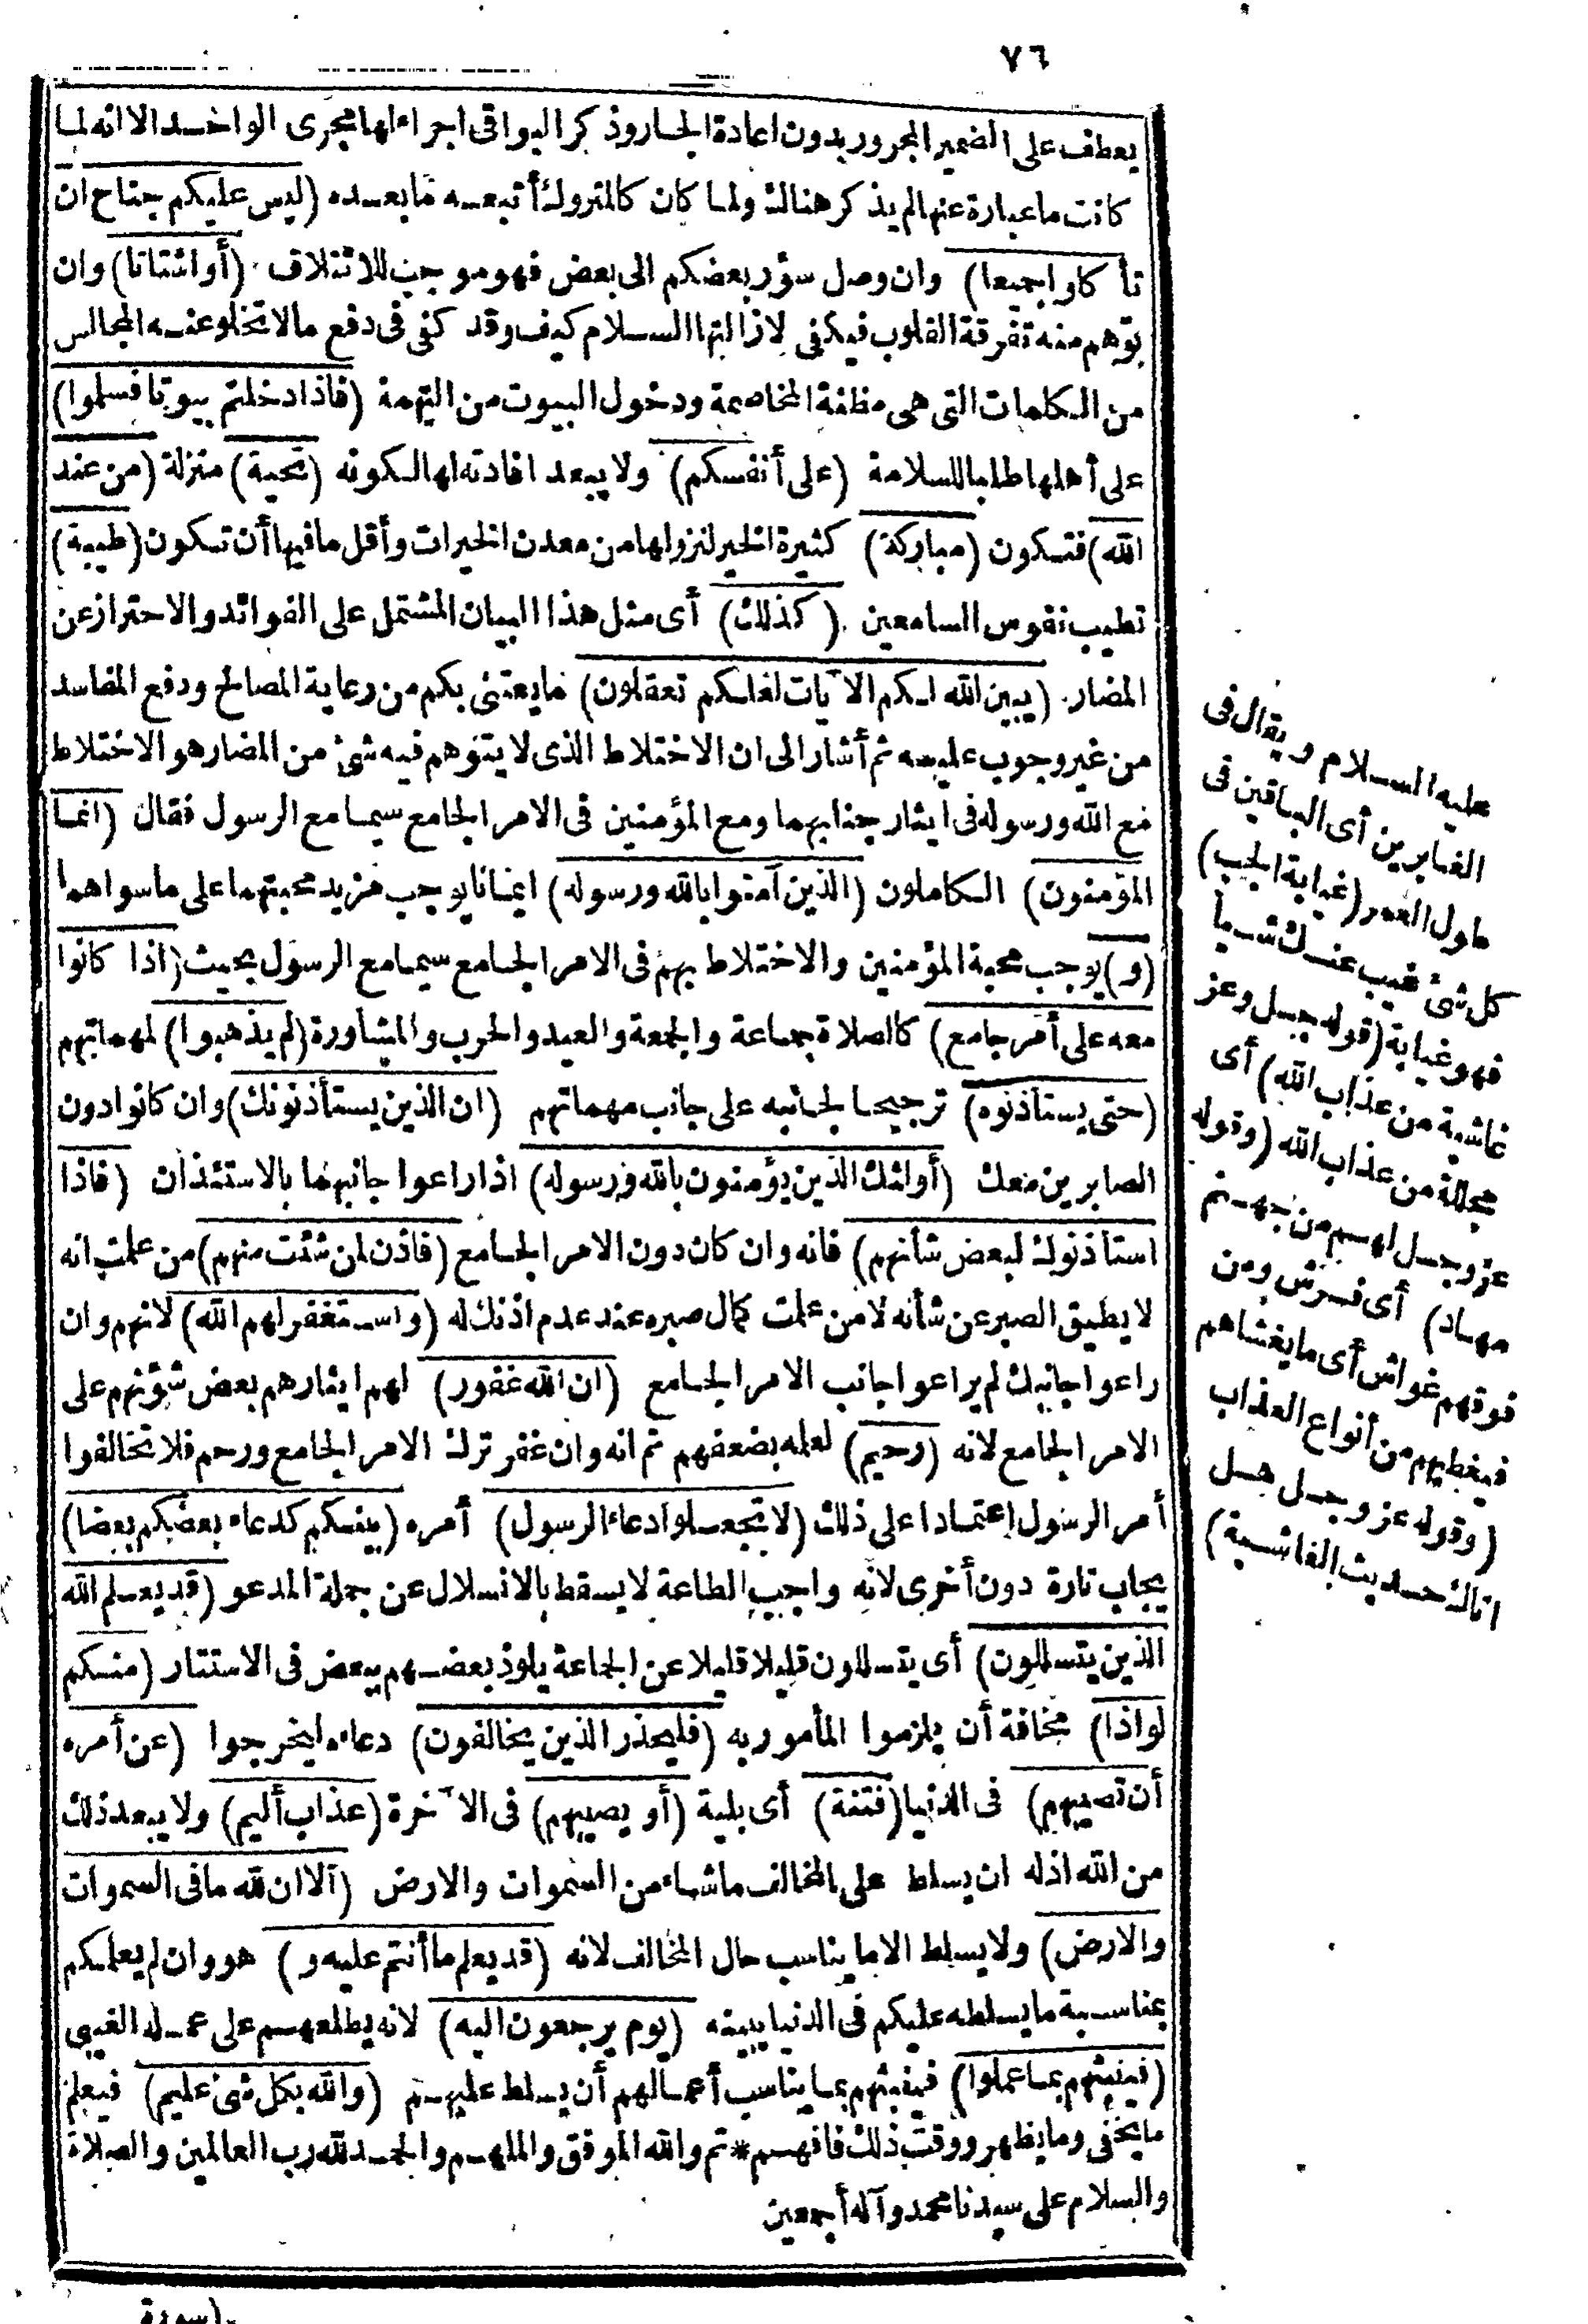 ٧٦
يعطف على الضمير المجرور بدون اعادة الجار وذكر البواقى اجراء لها مجرى الواحد الا انه لما
كانت ما عبارة عنها لم يذكر هنالك ولما كان كالمتروك أتبعه ما بعده (ليس عليكم جناح ان
تأكلوا جميعا) وان وصل سؤر بعضكم الى بعض فهو موجب للائتلاف (أو اشتاتا) وان
توهم منه تفرقة القلوب فيكفى لازالتها السلام كيف وقد كفى فى دفع مالا تخلو عنه المجالس
من الكلمات التى هى مظنة المخاصمة ودخول البيوت من التهمة (فاذا دخلتم بيوتا فسلموا)
على أهلها طلبا للسلامة (على أنفسكم) ولا يبعد افادته لها لكونه (تحية) منزلة (من عند
الله) فتكون (مباركة) كثيرة الخير لنزولها من معدن الخيرات وأقل ما فيها أن تكون (طيبة)
تطيب نفوس السامعين (كذلك) أى مثل هذا البيان المشتمل على الفوائد والاحتراز عن
المضار (يبين الله لكم الآيات لعلكم تعقلون) ما يعتنى بكم من رعاية المصالح ودفع المفاسد
من غير وجوب عليه ثم أشار الى ان الاختلاط الذى لا يتوهم فيه شئ من المضار هو الاختلاط
مع الله ورسوله فى ايثار جنابهما ومع المؤمنين فى الامر الجامع سيما مع الرسول فقال (انما
المؤمنون) الكاملون (الذين آمنوا بالله ورسوله) ايمانا يوجب مزيد محبتهما على ما سواهما
(و) يوجب محبة المؤمنين والاختلاط بهم فى الامر الجامع سيما مع الرسول بحيث (اذا كانوا
معه على أمر جامع) كالصلاة بجماعة والجمعة والعيد والحرب والمشاورة (لم يذهبوا) لمهماتهم
(حتى يستأذنوه) ترجيحا لجانبه على جانب مهماتهم (ان الذين يستأذنونك) وان كانوا دون
الصابرين معك (أولئك الذين يؤمنون بالله ورسوله) اذا راعوا جانبهما بالاستئذان (فاذا
استأذنوك لبعض شأنهم) فانه وان كان دون الامر الجامع (فاذن لمن شئت منهم) من علمت انه
لا يطيق الصبر عن شأنه لا من علمت كمال صبره عند عدم اذنك له (واستغفر لهم الله) لانهم وان
راعوا جانبك لم يراعوا جانب الامر الجامع (ان الله غفور) لهم ايثارهم بعض شؤنهم على
الامر الجامع لانه (رحيم) لعلمه بضعفهم ثم انه وان غفر ترك الامر الجامع ورحم فلا تخالفوا
أمر الرسول اعتمادا على ذلك (لا تجعلوا دعاء الرسول) أمره (بينكم كدعاء بعضكم بعضا)
يجاب تارة دون أخرى لانه واجب الطاعة لا يسقط بالانسلال عن جملة المدعو (قد يعلم الله
الذين يتسللون) أى يتسللون قليلا قليلا عن الجماعة يلوذ بعضهم ببعض فى الاستتار (منكم
لواذا) مخافة أن يلزموا المأمور به (فليحذر الذين يخالفون) دعاءه ليخرجوا (عن أمره
أن تصيبهم) فى الدنيا (فتنة) أى بلية (أو يصيبهم) فى الآخرة (عذاب أليم) ولا يبعد ذلك
من الله اذ له ان يسلط على المخالف ما شاء من السموات والارض (ألا ان لله ما فى السموات
والارض) ولا يسلط الا ما يناسب حال المخالف لانه (قد يعلم ما أنتم عليه و) هو وان لم يعلمكم
بمناسبة ما يسلطه عليكم فى الدنيا يبينه (يوم يرجعون اليه) لانه يطلعهم على عمله الغيبى
(فينبئهم بما عملوا) فينبئهم بما يناسب أعمالهم أن يسلط عليهم (والله بكل شئ عليم) فيعلم
ما يخفى وما يظهر ووقت ذلك فافهم * تم والله الموفق والملهم والحمد لله رب العالمين والصلاة
والسلام على سيدنا محمد وآله أجمعين
عليه السلام ويقال فى
الغابرين أى الباقين فى
طول العمر (غيابة الجب)
كل شئ غيب عنك شيأ
فهو غيابة (قوله جل وعز
غاشية من عذاب الله) أى
مجللة من عذاب الله (وقوله
عز وجل لهم من جهنم
مهاد) أى فرش ومن
فوقهم غواش أى ما يغشاهم
فيغطيهم من أنواع العذاب
(وقوله عز وجل هل
اتاك حديث الغاشية)
(سورة